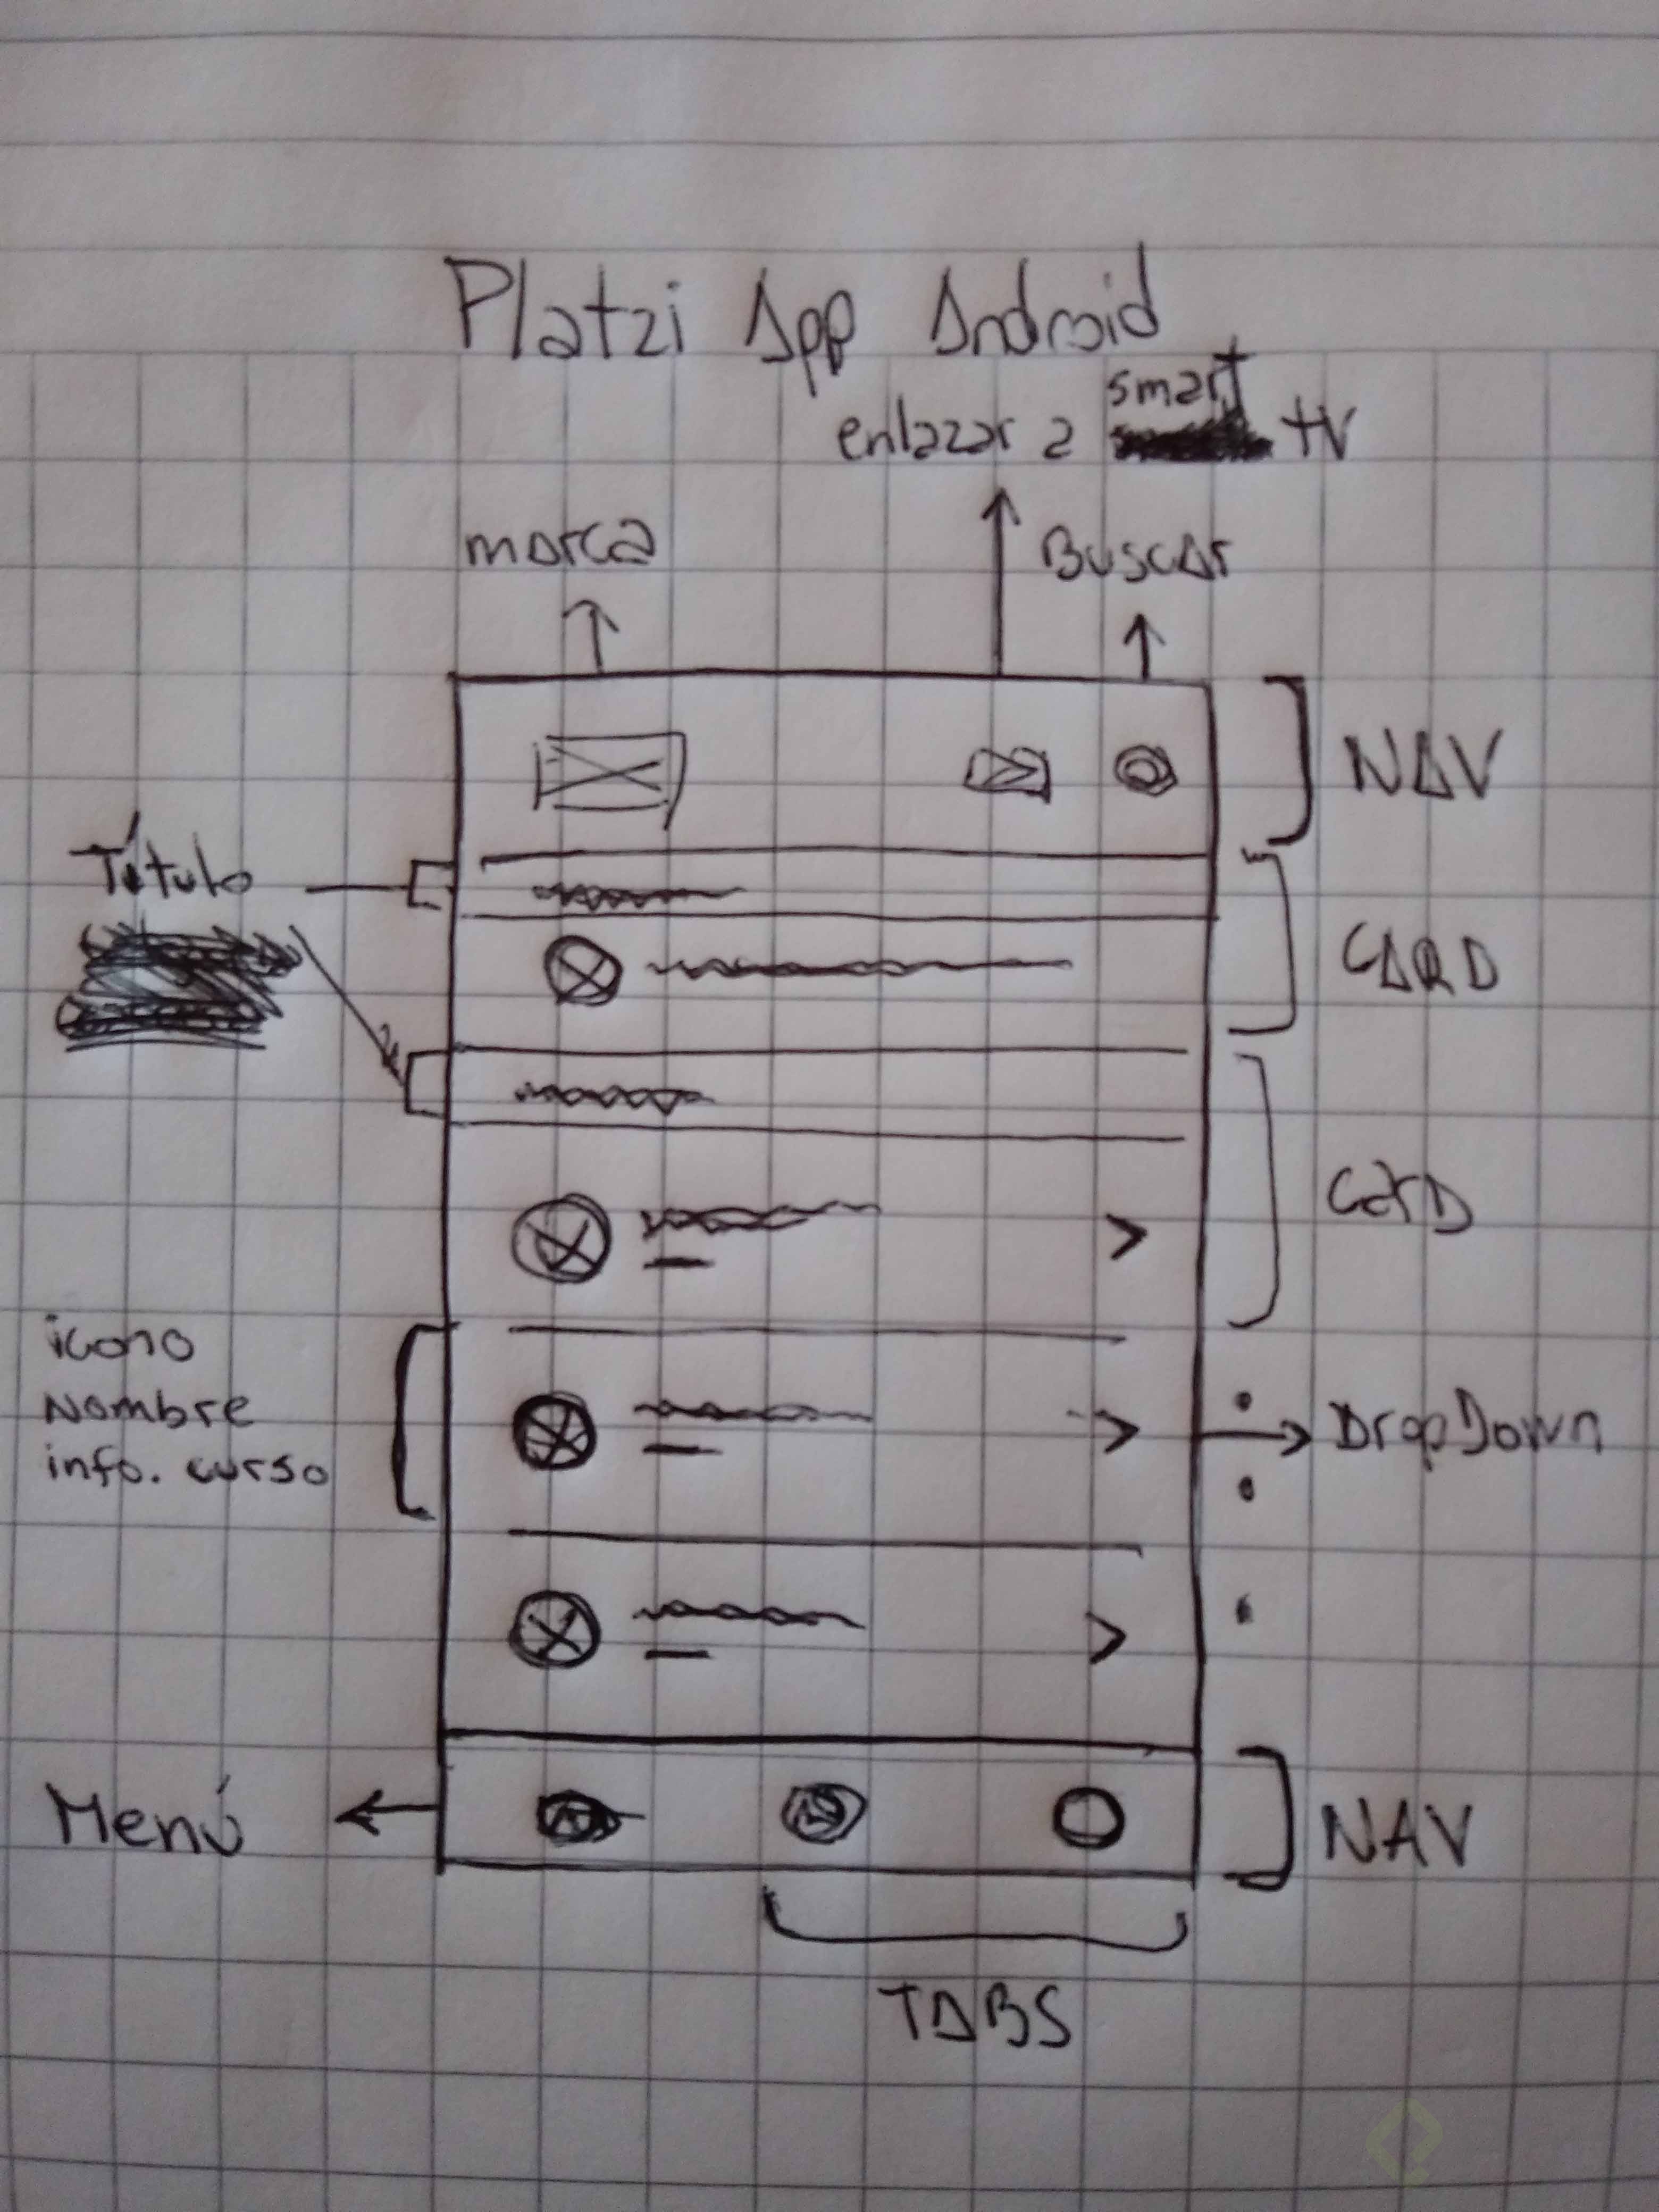 Platzi App Android
smart
enlazar a tv
marca
Buscar
NAV
Título
CARD
CarD
icono
Nombre
info. curso
DropDown
Menú
NAV
TABS